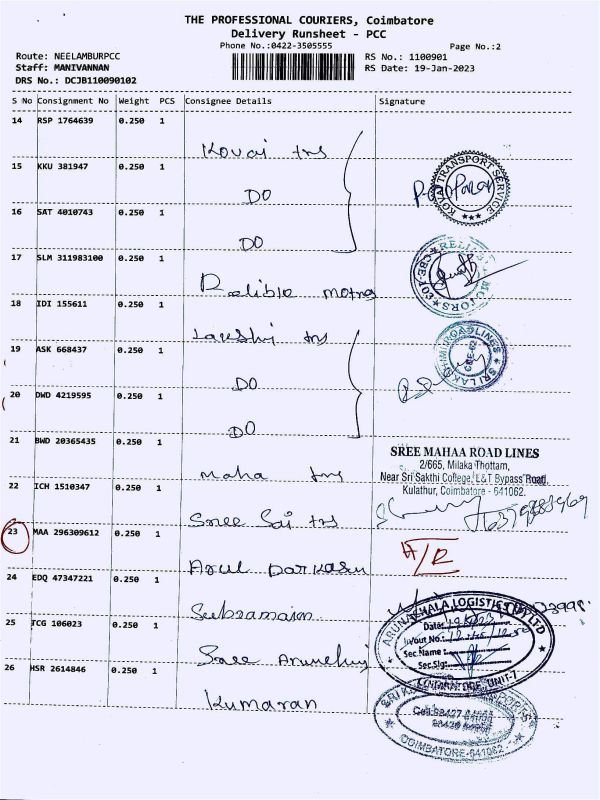 THE PROFESSIONAL COURIERS, Coimbatore
Delivery Runsheet - PCC
Phone No.:0422-3505555
Page No.:2
Route: NEELAMBURPCC
RS No.: 1100901
Staff: MANIVANNAN
RS Date: 19-Jan-2023
DRS No.: DCJB110090102
S No Consignment No Weight PCS Consignee Details Signature
14 RSP 1764639 0.250 1
Kovai trs
KOVAI TRANSPORT SERVICE
15 KKU 381947 0.250 1
DO
16 SAT 4010743 0.250 1
DO
17 SLM 311983100 0.250 1
Relible motors
RELIABLE MOTORS
18 IDI 155611 0.250 1
Lakshi trs
SRI LAKSHMI ROADLINES
19 ASK 668437 0.250 1
DO
20 DWD 4219595 0.250 1
DO
21 BWD 20365435 0.250 1
maha trs
SREE MAHAA ROAD LINES
2/665, Milaka Thottam,
Near Sri Sakthi College, L&T Bypass Road,
Kulathur, Coimbatore - 641062.
22 ICH 1510347 0.250 1
Sree Sai trs
23 MAA 296309612 0.250 1
Arul
24 EDQ 47347221 0.250 1
25 TCG 106023 0.250 1
Sree
ARUNACHALA LOGISTICS PVT LTD
Date:
Invout No.:
Sec.Name:
Sec.Sig:
COIMBATORE, UNIT-7
26 HSR 2614846 0.250 1
Kumaran
COIMBATORE-641062